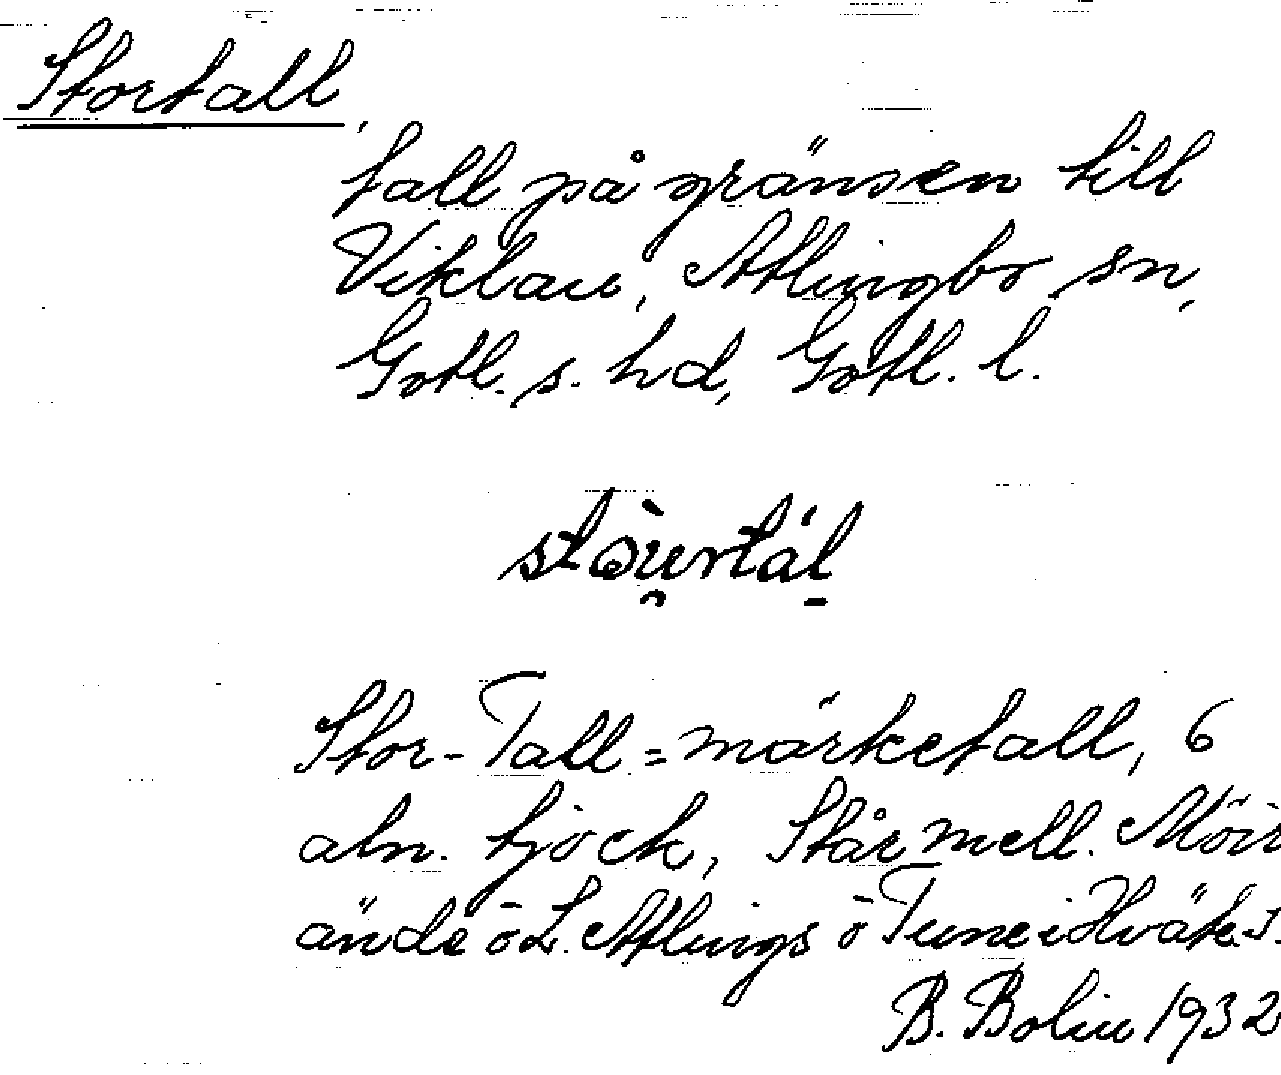 Stortall,
tall på gränsen till
Viklau, Atlingbo sn,
Gotl. s. hd, Gotl. l.
stòu̯rtál̠
Stor-Tall = märketall, 6
aln. tjock, Står mell. Möir
ände ō L. Atlings ō Tune i Hväte.
B. Bolin 1932